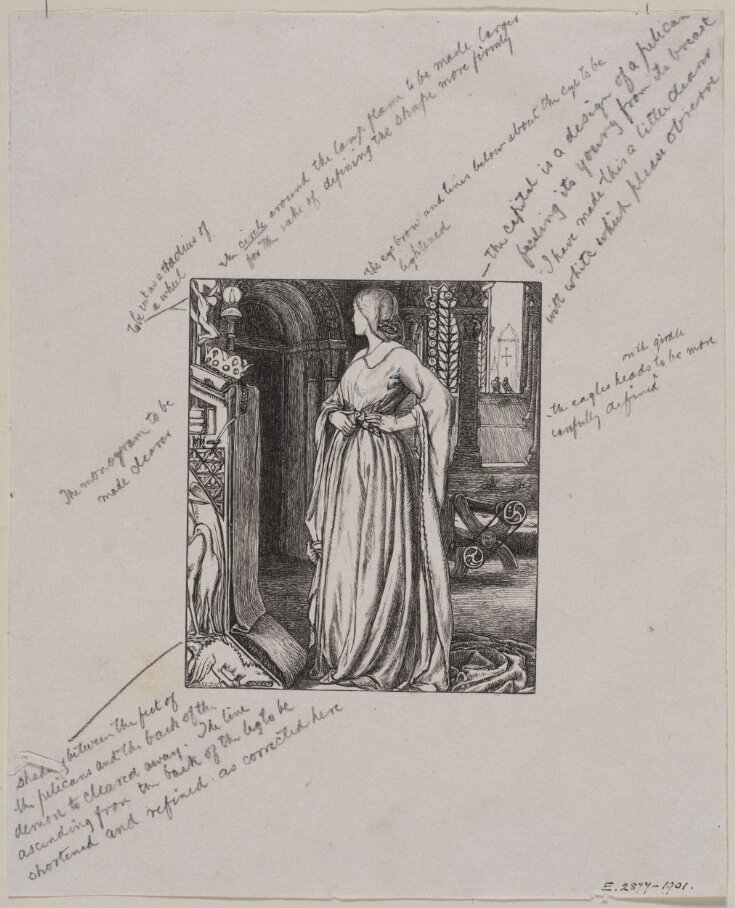 the circle around the lamp flame to be made larger
for the sake of defining the shape more firmly
the eye brow and lines below about the eye to be
lightened
- the capital is a design of a pelican
feeding its young from its breast
I have made this a little clearer
with white which please observe
to be cut as a radius of
a wheel
on the girdle
the eagles heads to be more
carefully defined
The monogram to be
made clearer
shading between the feet of
the pelicans and the back of the
demon to cleared away. The line
ascending from the back of the leg to be
shortened and refined. as corrected here
E. 2877-1901.